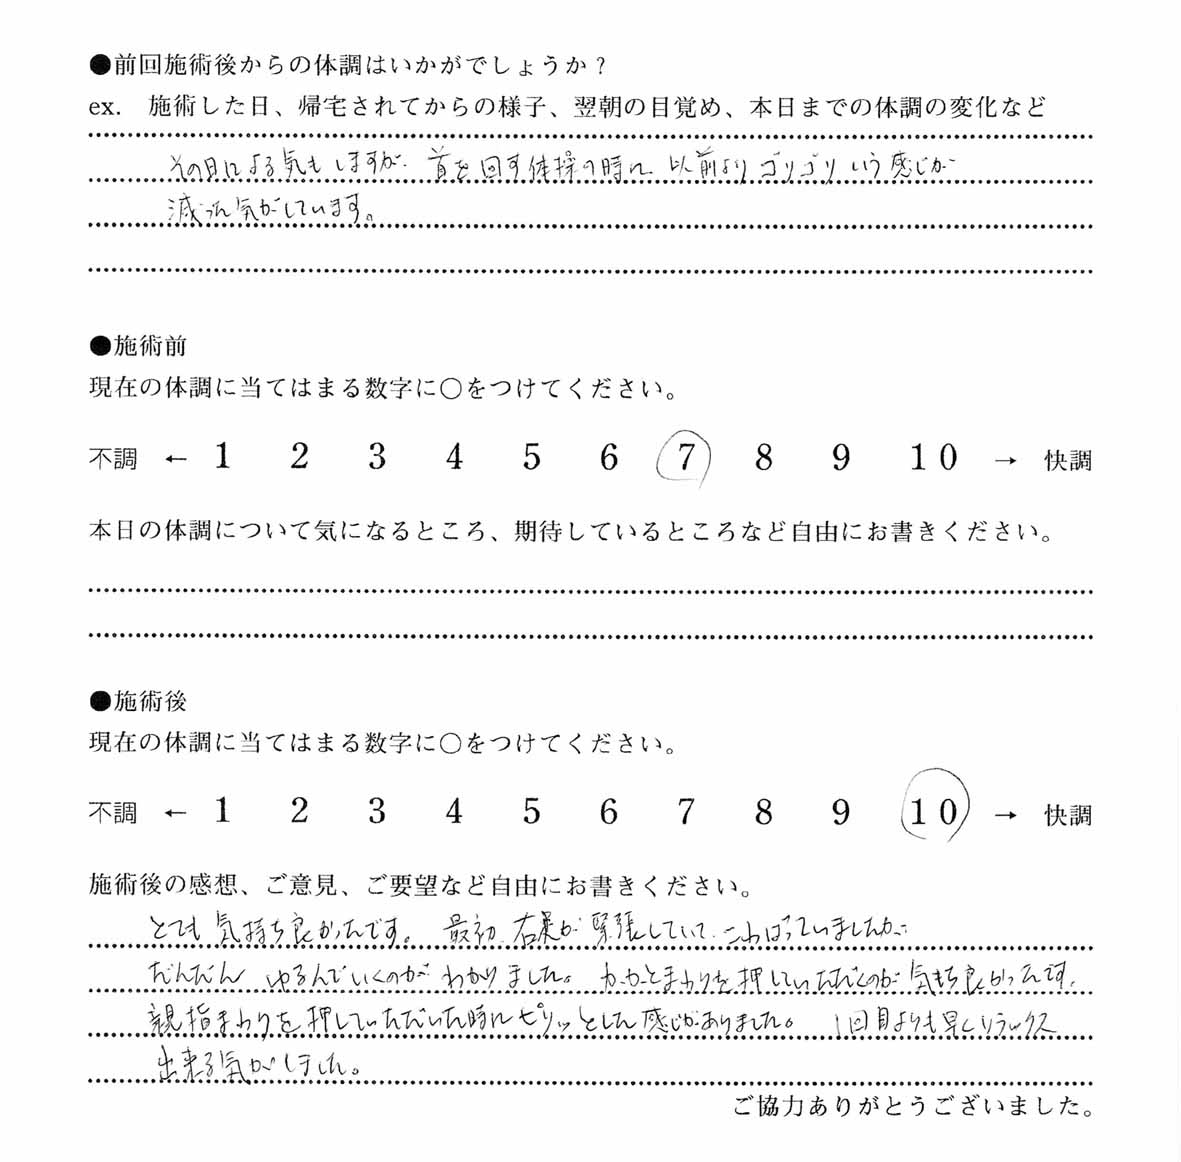 ●前回施術後からの体調はいかがでしょうか?
ex. 施術した日、帰宅されてからの様子、翌朝の目覚め、本日までの体調の変化など
その日による気もしますが、首を回す体操の時に、以前よりゴリゴリいう感じが
減った気がしています。
●施術前
現在の体調に当てはまる数字に〇をつけてください。
不調 ← 1 2 3 4 5 6 7 8 9 10 → 快調
本日の体調について気になるところ、期待しているところなど自由にお書きください。
●施術後
現在の体調に当てはまる数字に〇をつけてください。
不調 ← 1 2 3 4 5 6 7 8 9 10 → 快調
施術後の感想、ご意見、ご要望など自由にお書きください。
とても気持ち良かったです。最初、右巣が緊張していて、こわばっていましたが
だんだん ゆるんでいくのがわかりました。かかとまわりを押していただくのが気もち良かったです。
親指まわりを押していただいた時にピリッとした感じがありました。1回目よりも早くリラックス
出来る気がしました。
ご協力ありがとうございました。